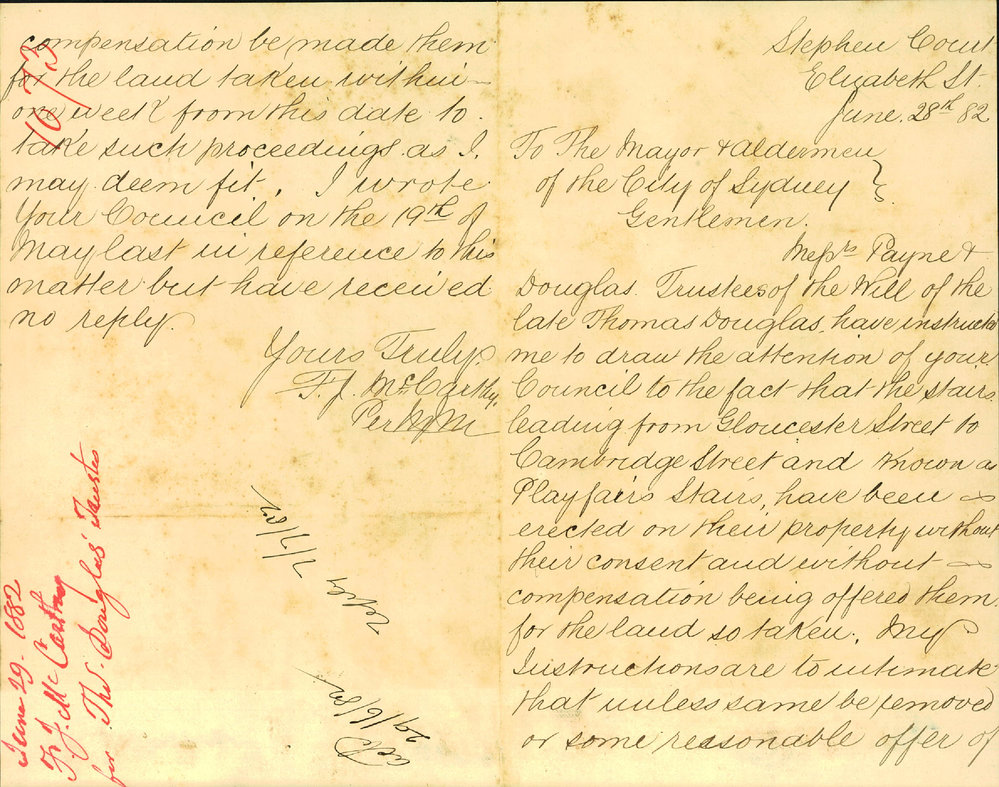 Stephen Court
Elizabeth St.
June. 28th 82
To The Mayor & Aldermen
of the City of Sydney
Gentlemen.
Messrs Payne &
Douglas. Trustees of the Will of the
late Thomas Douglas. have instructed
me to draw the attention of your
Council to the fact that the stairs
leading from Gloucester Street to
Cambridge Street and known as
Playfairs Stairs, have been
erected on their property without
their consent and without
compensation being offered them
for the land so taken. My
Instructions are to intimate
that unless same be removed
or some reasonable offer of
compensation be made them
for the land taken within
one week from this date to
take such proceedings as I
may deem fit. I wrote
Your Council on the 19th of
May last in reference to this
matter but have received
no reply.
Yours Truly
F. J. McCarthy.
Per
1073
June 29. 1882
F. J. McCarthy
for Thos. Douglas' Trustees
Reply 7/7/82
29/6/82